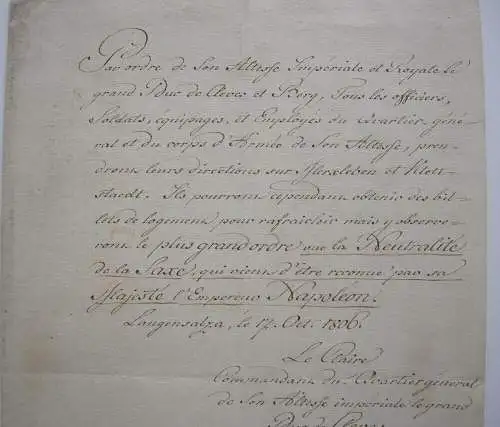 Par ordre de Son Altesse Impériale et Royale le
grand Duc de Cleves et Berg, Tous les officiers,
Soldats, équipages, et Employés du Quartier-géné-
ral et du corps d'Armée de Son Altesse, pren-
dront leurs directions sur et Klett-
staedt. Ils pourront cependant obtenir des bil-
lets de logement pour rafraichir mais y observe-
ront le plus grand ordre vue la Neutralité
de la Saxe, qui vient d'être reconue par sa
Majesté l'Empereur Napoléon.
Langensalza, le 17. Oct. 1806.
Le Claire
Commandant du Quartier général
de Son Altesse imperiale le grand
Duc de Cleves